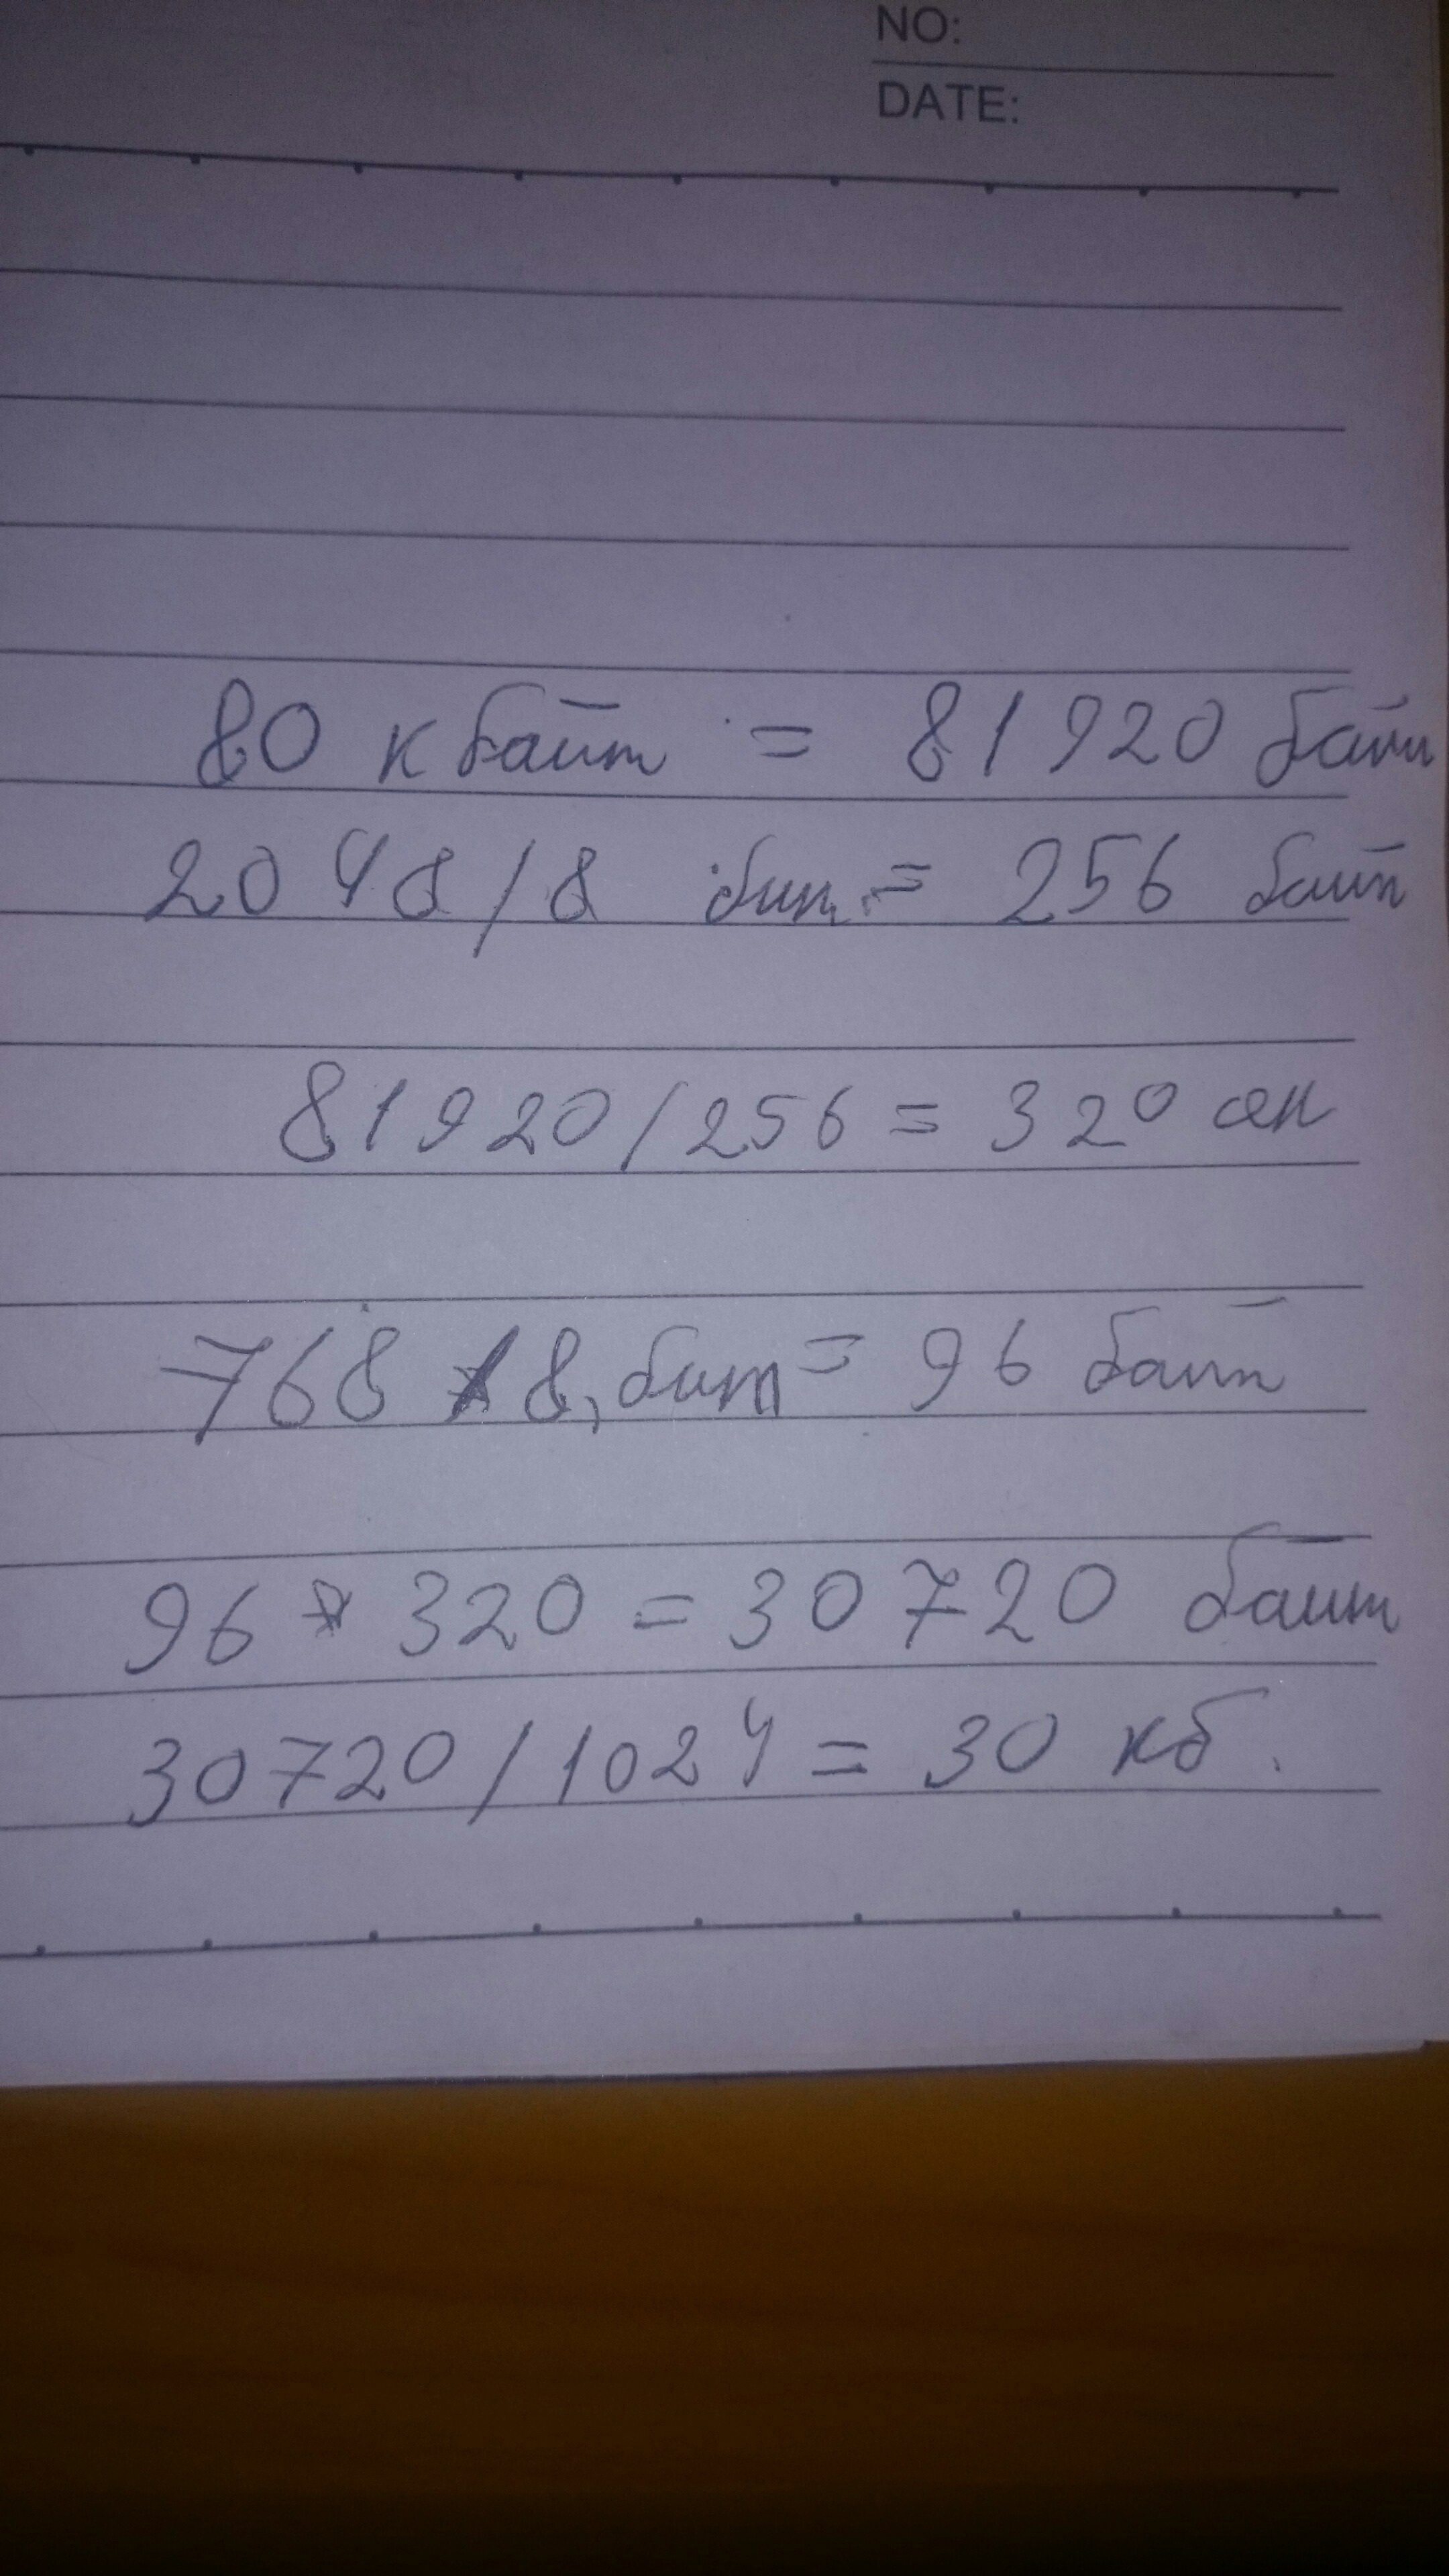 NO:
DATE:
80 кбайт = 81920 байт
2048/8 бит = 256 байт
81920/256 = 320 сек
768 / 8, бит = 96 байт
96 * 320 = 30720 байт
30720/1024 = 30 кб.